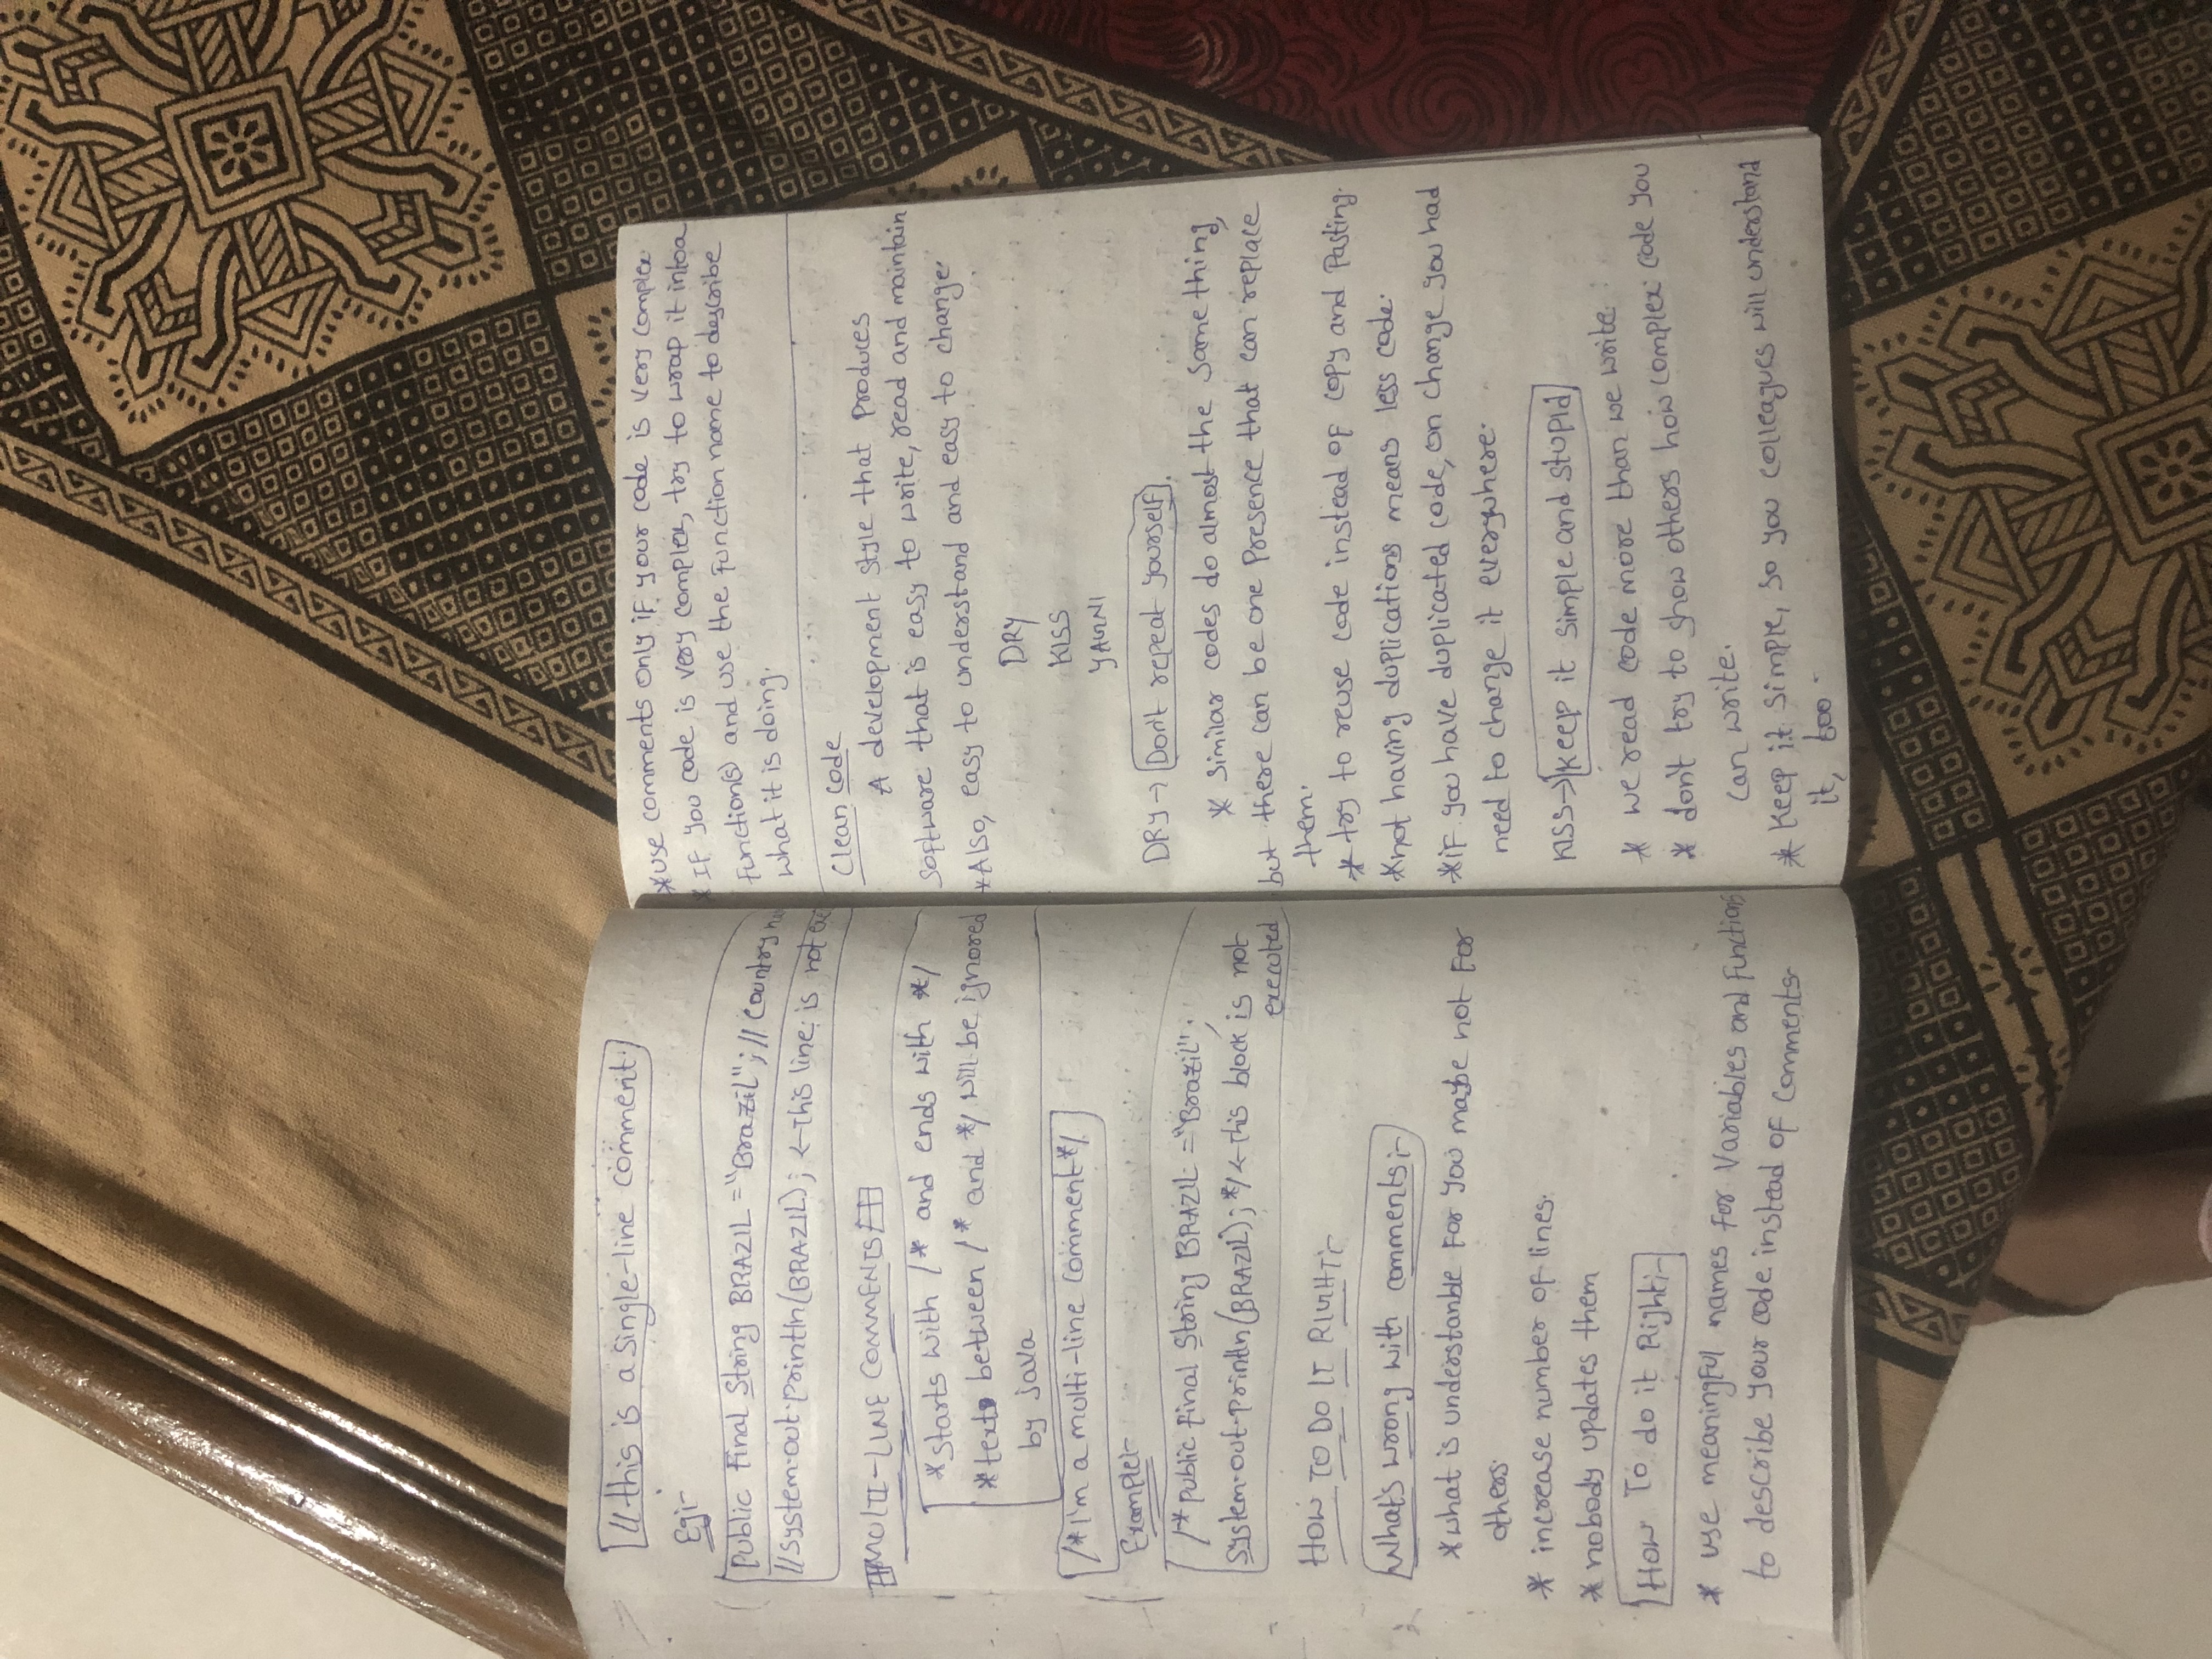 //this is a single-line comment.
Eg:-
Public Final String BRAZIL = "Brazil"; // Country
//System.out.println(BRAZIL); ←This line is not
MULTI-LINE COMMENTS
*starts with /* and ends with */
*text between /* and */ will be ignored
by java
/*I'm a multi-line comment*/
Example:-
/*Public final String BRAZIL = "Brazil";
System.out.println(BRAZIL);*/ ←This block is not
executed
HOW TO DO IT RIGHT:-
What's wrong with comments:-
*what is understanble For you maybe not For
others.
* increase number of lines.
* nobody updates them
How To do it Right:-
* use meaningful names for Variables and Functions
to describe your code instead of comments.
*use comments only if your code is very complex.
* IF you code is very complex, try to wrap it into a
function(s) and use the function name to describe
what it is doing.
Clean Code
A development style that produces
software that is easy to write, read and maintain
*Also, easy to understand and easy to change.
DRY
KISS
YAGNI
DRY → Don't repeat yourself.
* similar codes do almost the same thing,
but there can be one presence that can replace
them.
* try to reuse code instead of copy and Pasting.
*not having duplications means less code.
*if you have duplicated code, on change you had
need to change it everywhere.
KISS→ keep it simple and stupid
* we read code more than we write.
* don't try to show others how complex code you
can write.
* Keep it simple, so you colleagues will understand
it, too.